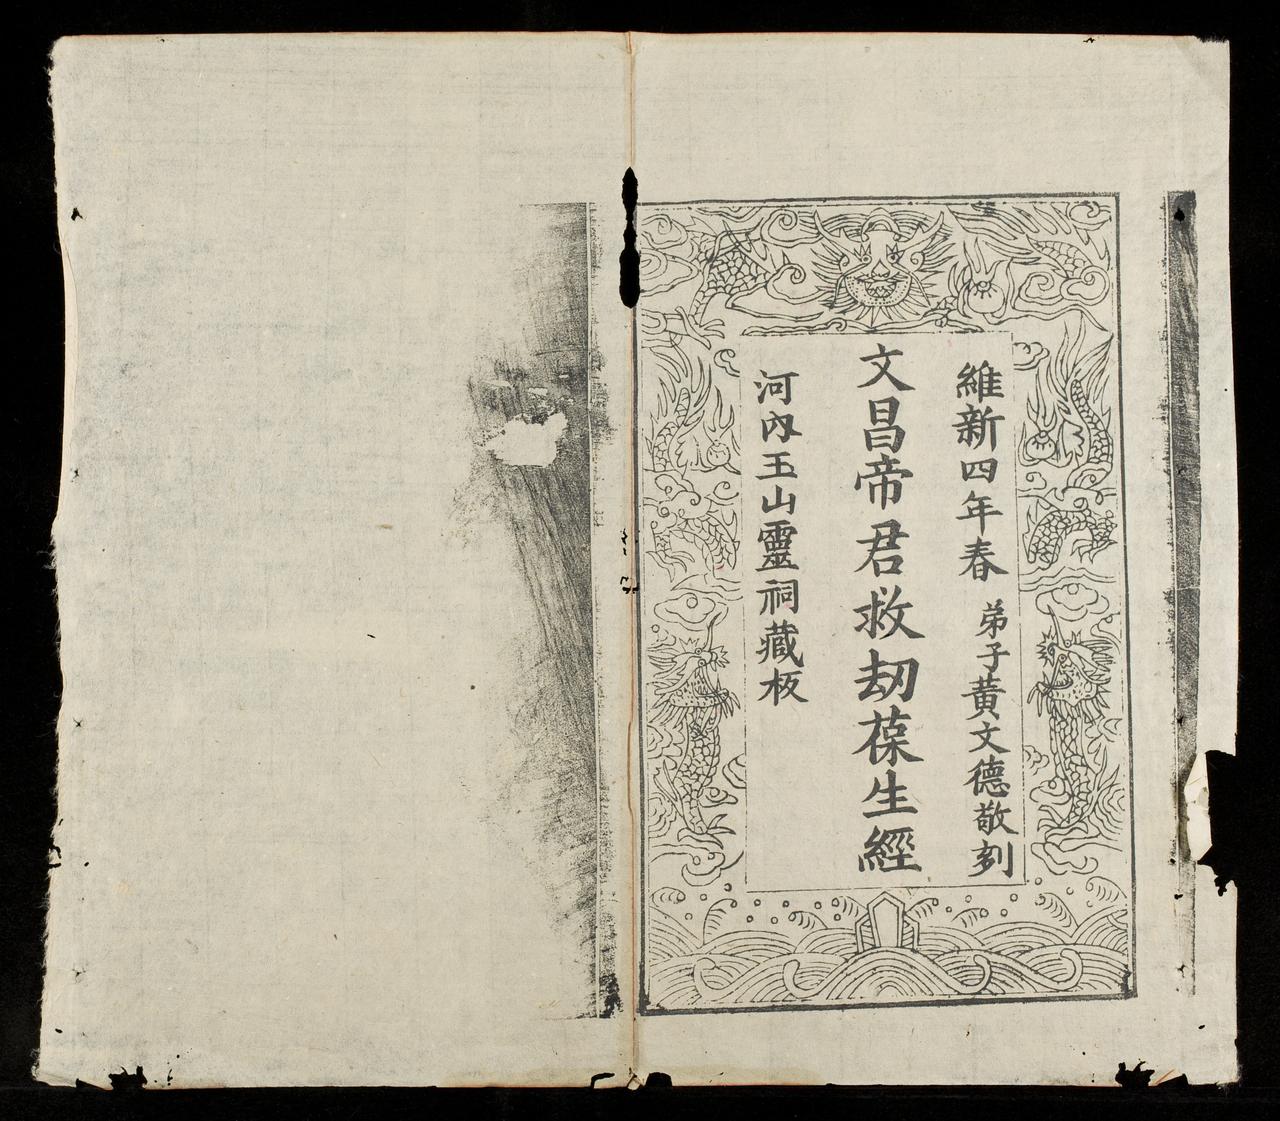 維新四年春 弟子黄文德敬刻
文昌帝君救刼葆生經
河內玉山靈祠藏板